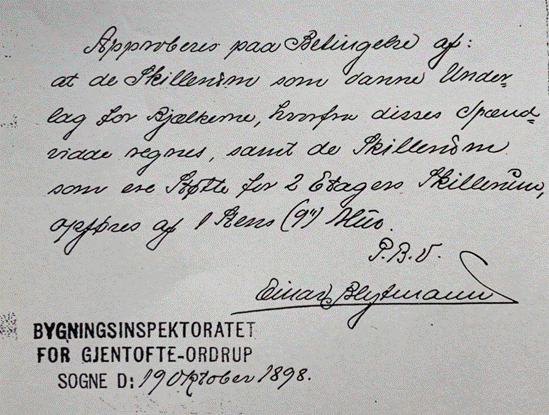 Approberes paa Betingelse af:
at de Skillerum som danne Under-
lag for Bjælkerne, hvorfra disses Spænd-
vidde regnes, samt de Skillerum
som ere Støtte for 2 Etagers Skillerum,
opføres af 1 Stens (9") Mur.
P.B.V.
Einar Bleymann
BYGNINGSINSPEKTORATET
FOR GJENTOFTE-ORDRUP
SOGNE D: 19 Oktober 1898.